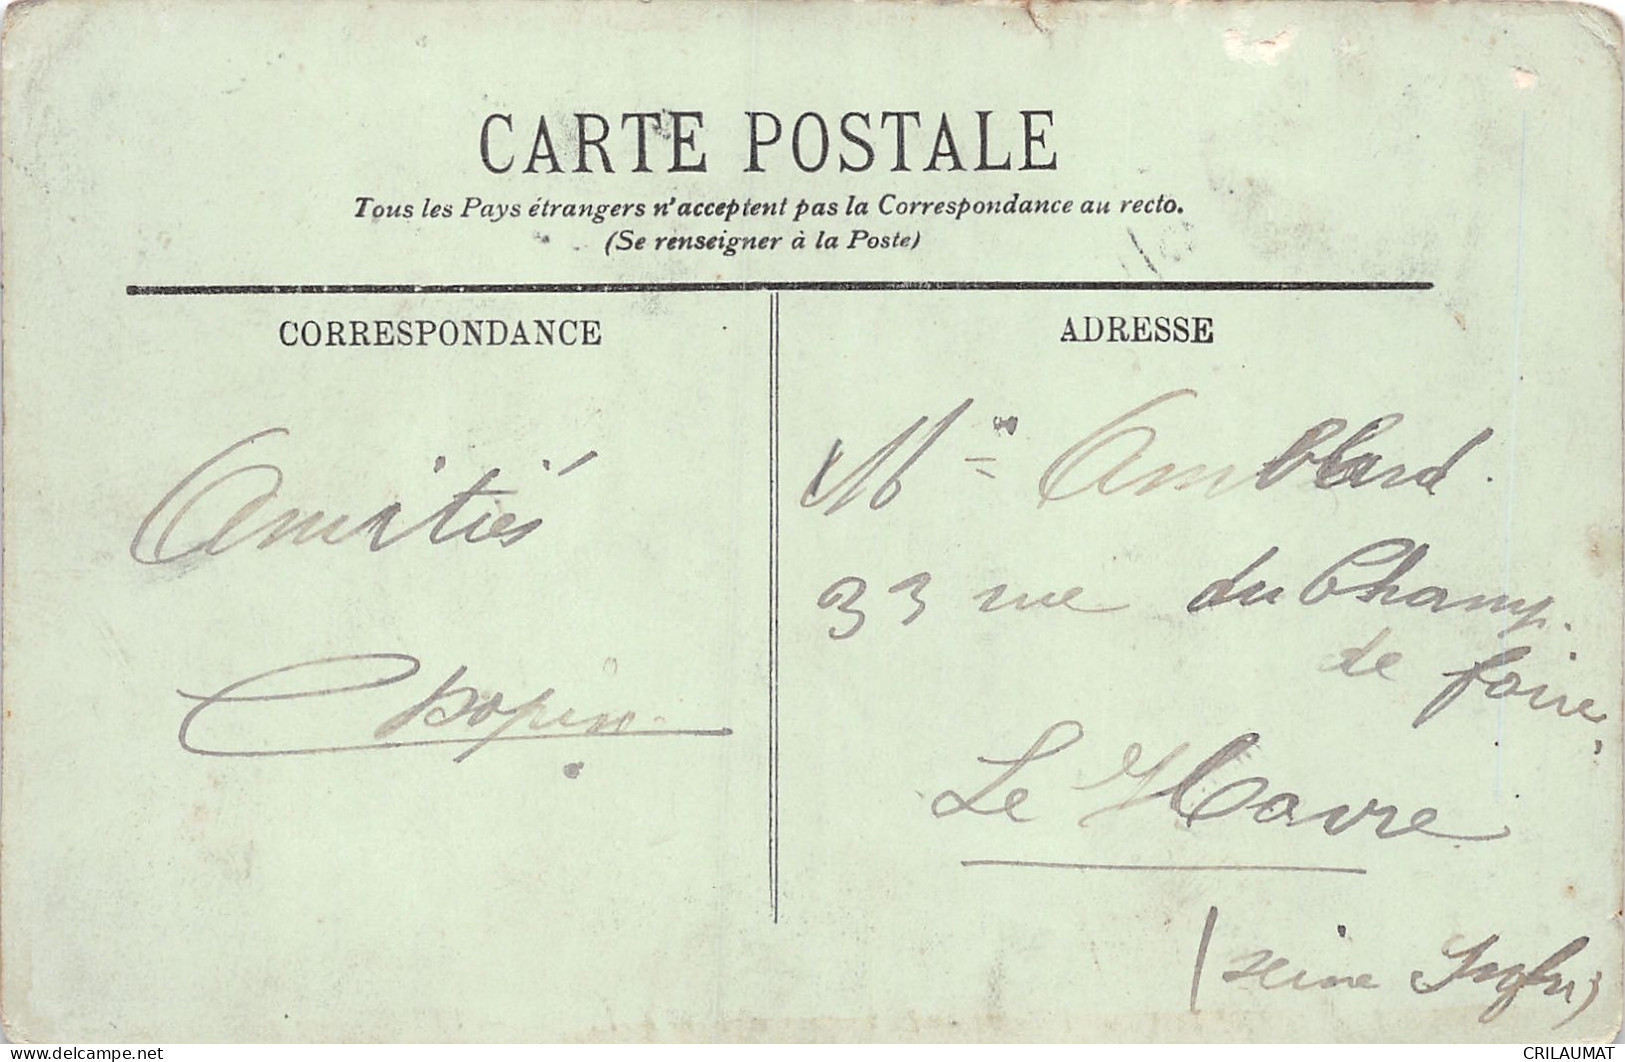 CARTE POSTALE
Tous les Pays étrangers n'acceptent pas la Correspondance au recto.
(Se renseigner à la Poste)
CORRESPONDANCE
Amitiés
ADRESSE
Amblard.
33 rue du Champ.
de foire,
Le Havre
(Seine
the-postcard.com
CRILAUMAT